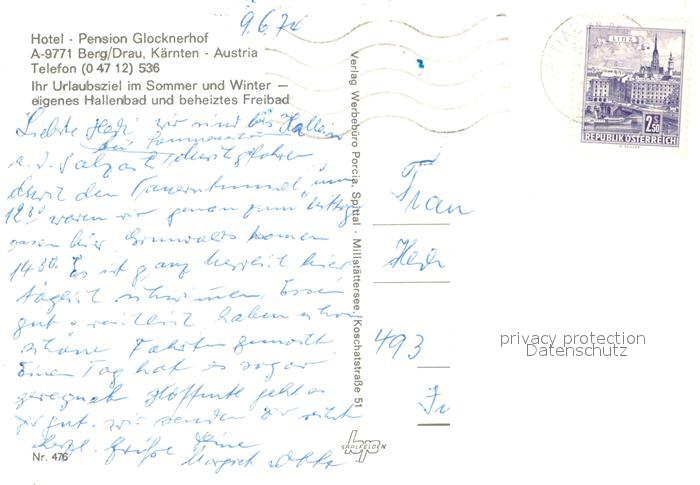 9.6.74
Hotel - Pension Glocknerhof
A-9771 Berg/Drau, Kärnten - Austria
Telefon (0 47 12) 536
Ihr Urlaubsziel im Sommer und Winter —
eigenes Hallenbad und beheiztes Freibad
Liebste Hedi, wir sind bis Hallein
a. d. Salzach durchgefahren
durch den Tauerntunnel, um
12 30 waren wir genau zum Mittag
essen hier. Grunwalds kamen
14 30. Es ist ganz herrlich hier
täglich schwimmen. Essen
gut + reichlich haben schon
schöne Fahrten gemacht
Einen Tag hat es sogar
geregnet. Hoffentl. geht es
Dir gut. wir senden Dir recht
herzl. Grüße Deine
Margret
Nr. 476
Verlag Werbebüro Porcia, Spittal - Millstättersee, Koschatstraße 51
SAALFELDEN
LINZ
2.50
REPUBLIK ÖSTERREICH
Frau
493
privacy protection
Datenschutz